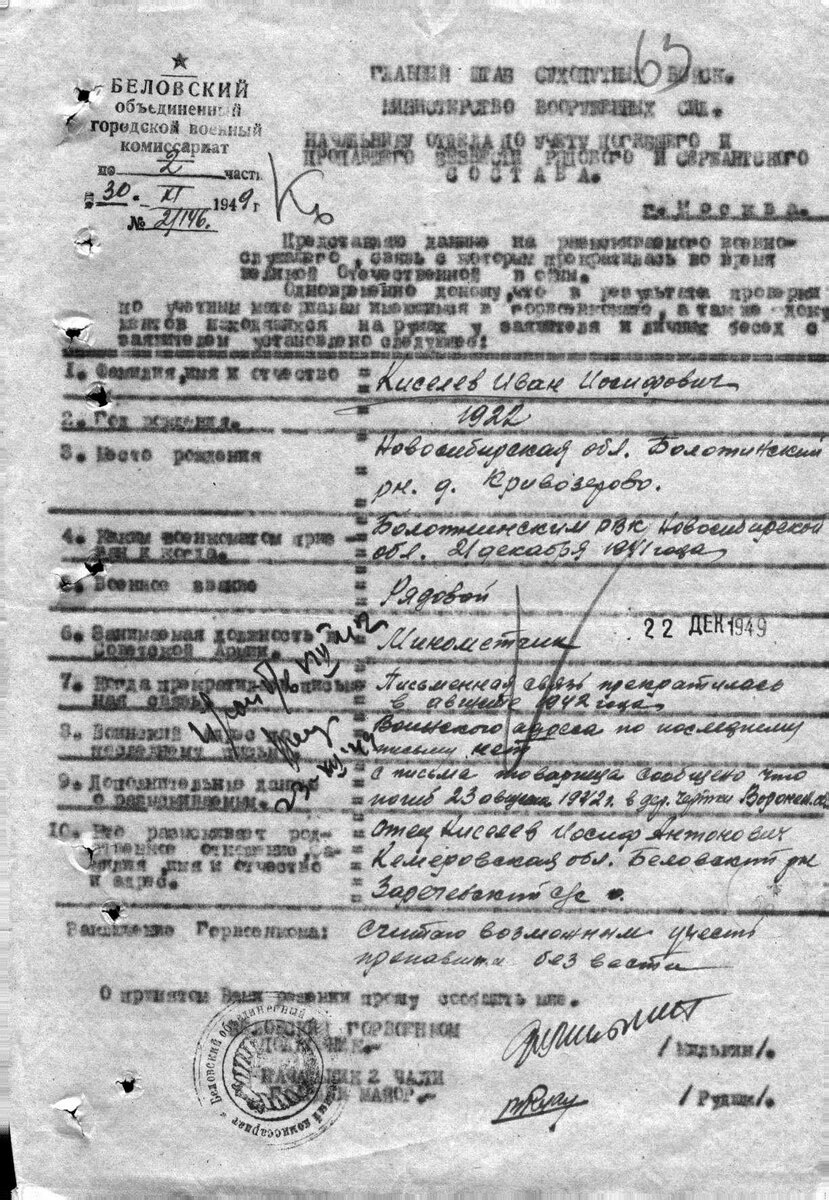 65
БЕЛОВСКИЙ
объединенный
городской военный
комиссариат
по 2 часть
30. XI 1949 г
№ 2/146.
ГЛАВНЫЙ ШТАБ СУХОПУТНЫХ ВОЙСК.
МИНИСТЕРСТВО ВООРУЖЕННЫХ СИЛ.
НАЧАЛЬНИКУ ОТДЕЛА ПО УЧЕТУ ПОГИБШЕГО И
ПРОПАВШЕГО БЕЗВЕСТИ РЯДОВОГО И СЕРЖАНТСКОГО
СОСТАВА.
г. Москва.
Представляю данные на разыскиваемого военно-
служащего, связь с которым прекратилась во время
Великой Отечественной войны.
Одновременно доношу, что в результате проверки
по учетным материалам имеющимся в горвоенкомате, а также доку
ментов находящихся на руках у заявителя и личных бесед с
заявителем установлено следующее:
1. Фамилия, имя и отчество = Киселев Иван Иосифович
2. Год рождения. 1922
3. Место рождения Новосибирская обл. Болотнинский
рн. д. Кривозерово.
4. Каким военкоматом приз-
ван и когда. Болотнинским РВК Новосибирской
обл. 21 декабря 1941 года
5. Военное звание Рядовой
6. Занимаемая должность в
Советской Армии. Минометчик
22 ДЕК 1949
7. Когда прекратилась письмен
ная связь. Письменная связь прекратилась
в августе 1942 года.
8. Воинский адрес по
последнему письму Воинского адреса по последнему
письму нет
9. Дополнительные данные
о разыскиваемым. с письма товарища сообщено что
погиб 23 августа 1942 г. в дер.
10. Кто разыскивает род-
ственное отношение, фа-
милия, имя и отчество
и адрес. Отец Киселев Иосиф Антонович
Кемеровская обл. Беловский рн
с/с
Заключение Горвоенкома: Считаю возможным учесть
пропавшим без вести
О принятом Вами решении прошу сообщить мне.
БЕЛОВСКИЙ ГОРВОЕНКОМ
НАЧАЛЬНИК 2 ЧАСТИ
МАЙОР.-
Беловский объединенный комиссариат